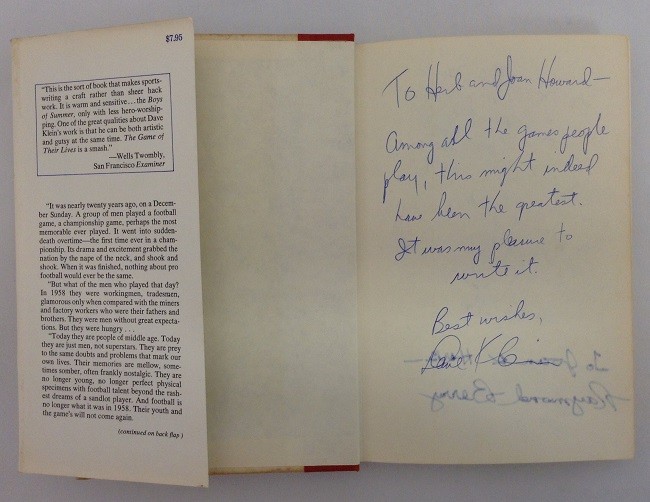 $7.95
"This is the sort of book that makes sports-
writing a craft rather than sheer hack
work. It is warm and sensitive...the Boys
of Summer, only with less hero-worship-
ping. One of the great qualities about Dave
Klein's work is that he can be both artistic
and gutsy at the same time. The Game of
Their Lives is a smash."
—Wells Twombly,
San Francisco Examiner
"It was nearly twenty years ago, on a Decem-
ber Sunday. A group of men played a football
game, a championship game, perhaps the most
memorable ever played. It went into sudden-
death overtime—the first time ever in a cham-
pionship. Its drama and excitement grabbed the
nation by the nape of the neck, and shook and
shook. When it was finished, nothing about pro
football would ever be the same.
"But what of the men who played that day?
In 1958 they were workingmen, tradesmen,
glamorous only when compared with the miners
and factory workers who were their fathers and
brothers. They were men without great expecta-
tions. But they were hungry . . .
"Today they are people of middle age. Today
they are just men, not superstars. They are prey
to the same doubts and problems that mark our
own lives. Their memories are mellow, some-
times somber, often frankly nostalgic. They are
no longer young, no longer perfect physical
specimens with football talent beyond the rash-
est dreams of a sandlot player. And football is
no longer what it was in 1958. Their youth and
the game's will not come again.
(continued on back flap)
To Herb and Joan Howard—
Among all the games people
play, this might indeed
have been the greatest.
It was my pleasure to
write it.
Best wishes,
Dave Klein
To Joan
Raymond Berry